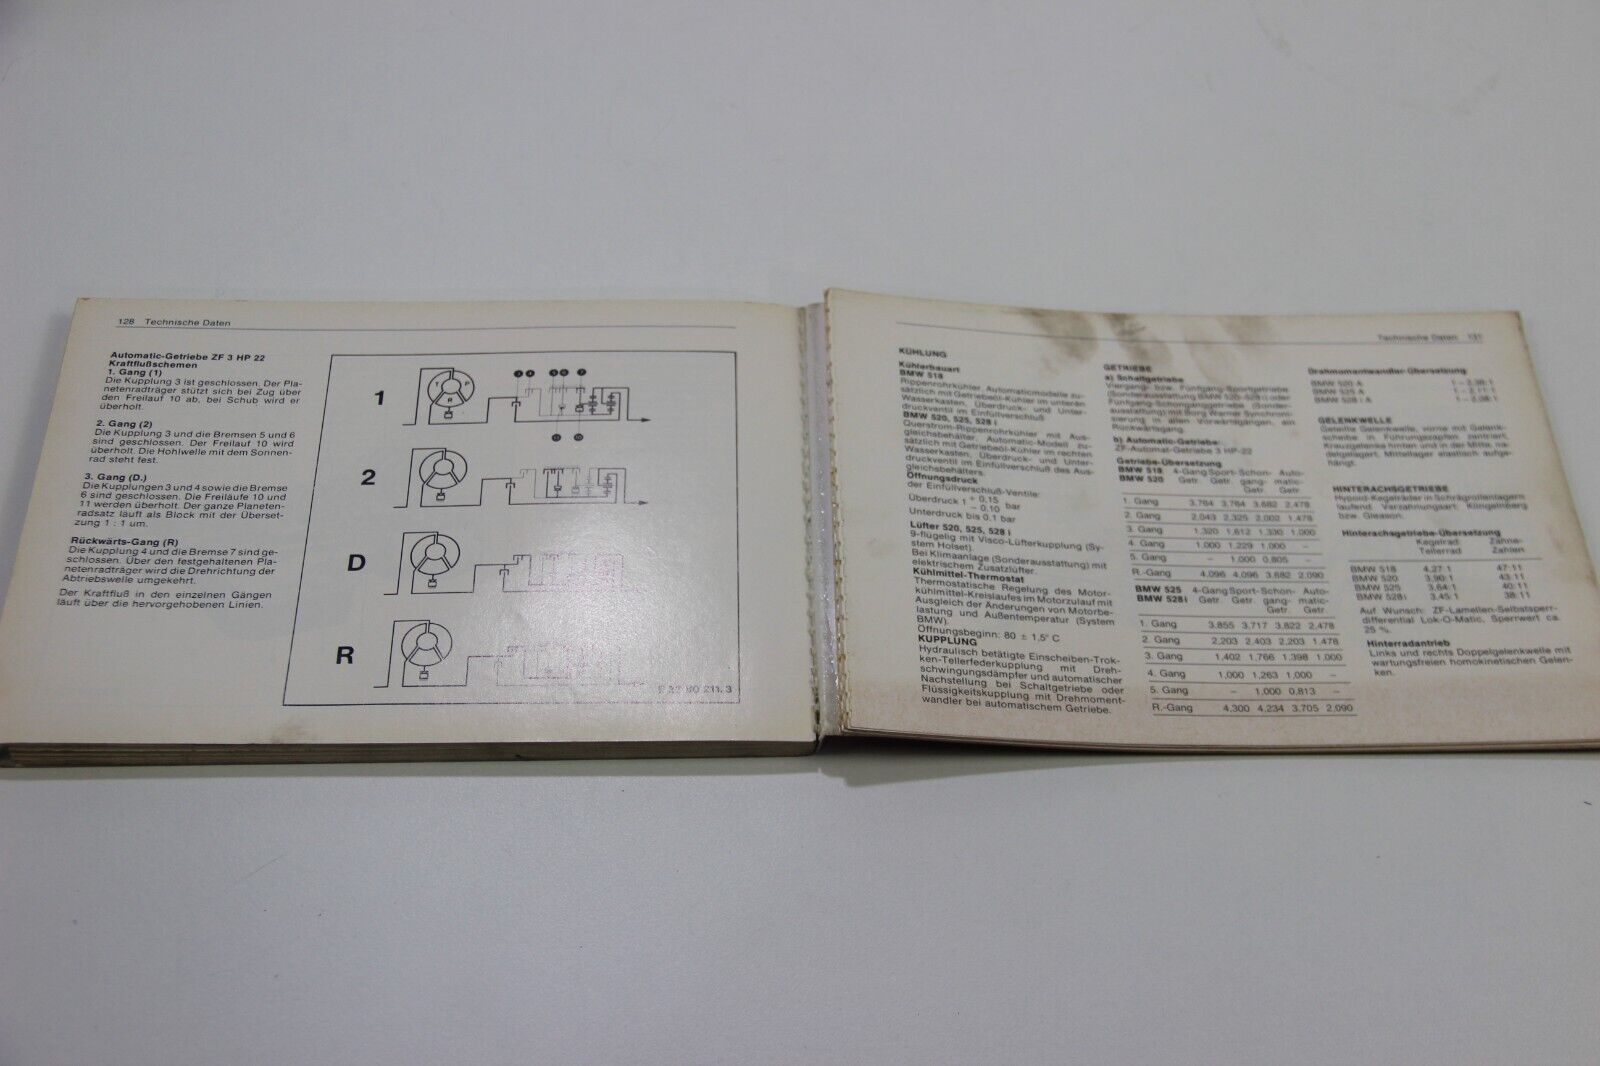 128 Technische Daten
Automatic-Getriebe ZF 3 HP 22
Kraftflußschemen
1. Gang (1)
Die Kupplung 3 ist geschlossen. Der Pla-
netenradträger stützt sich bei Zug über
den Freilauf 10 ab, bei Schub wird er
überholt.
2. Gang (2)
Die Kupplung 3 und die Bremsen 5 und 6
sind geschlossen. Der Freilauf 10 wird
überholt. Die Hohlwelle mit dem Sonnen-
rad steht fest.
3. Gang (D.)
Die Kupplungen 3 und 4 sowie die Bremse
6 sind geschlossen. Die Freiläufe 10 und
11 werden überholt. Der ganze Planeten-
radsatz läuft als Block mit der Überset-
zung 1 : 1 um.
Rückwärts-Gang (R)
Die Kupplung 4 und die Bremse 7 sind ge-
schlossen. Über den festgehaltenen Pla-
netenradträger wird die Drehrichtung der
Abtriebswelle umgekehrt.
Der Kraftfluß in den einzelnen Gängen
läuft über die hervorgehobenen Linien.
1
T P
R
2
D
R
Technische Daten 131
KÜHLUNG
Kühlerbauart
BMW 518
Rippenrohrkühler, Automaticmodelle zu-
sätzlich mit Getriebeöl-Kühler im unteren
Wasserkasten, Überdruck- und Unter-
druckventil im Einfüllverschluß
BMW 520, 525, 528 i
Querstrom-Rippenrohrkühler mit Aus-
gleichsbehälter. Automatic-Modell zu-
sätzlich mit Getriebeöl-Kühler im rechten
Wasserkasten, Überdruck- und Unter-
druckventil im Einfüllverschluß des Aus-
gleichsbehälters.
Öffnungsdruck
der Einfüllverschluß-Ventile:
Überdruck 1 + 0,15 bar
– 0,10
Unterdruck bis 0,1 bar
Lüfter 520, 525, 528 i
9-flügelig mit Visco-Lüfterkupplung (Sy-
stem Holset).
Bei Klimaanlage (Sonderausstattung) mit
elektrischem Zusatzlüfter.
Kühlmittel-Thermostat
Thermostatische Regelung des Motor-
kühlmittel-Kreislaufes im Motorzulauf mit
Ausgleich der Änderungen von Motorbe-
lastung und Außentemperatur (System
BMW).
Öffnungsbeginn: 80 ± 1,5° C
KUPPLUNG
Hydraulisch betätigte Einscheiben-Trok-
ken-Tellerfederkupplung mit Dreh-
schwingungsdämpfer und automatischer
Nachstellung bei Schaltgetriebe oder
Flüssigkeitskupplung mit Drehmoment-
wandler bei automatischem Getriebe.
GETRIEBE
a) Schaltgetriebe
Viergang- bzw. Fünfgang-Sportgetriebe
(Sonderausstattung BMW 520–528 i) oder
Fünfgang-Schongangetriebe (Sonder-
ausstattung) mit Borg Warner Synchroni-
sierung in allen Vorwärtsgängen, ein
Rückwärtsgang.
b) Automatic-Getriebe:
ZF-Automat-Getriebe 3 HP-22
Getriebe-Übersetzung
BMW 518 4-Gang Sport- Schon- Auto-
BMW 520 Getr. Getr. gang- matic-
Getr. Getr.
1. Gang 3,764 3,764 3,682 2,478
2. Gang 2,043 2,325 2,002 1,478
3. Gang 1,320 1,612 1,330 1,000
4. Gang 1,000 1,229 1,000 –
5. Gang – 1,000 0,805 –
R.-Gang 4,096 4,096 3,682 2,090
BMW 525 4-Gang Sport- Schon- Auto-
BMW 528 i Getr. Getr. gang- matic-
Getr. Getr.
1. Gang 3,855 3,717 3,822 2,478
2. Gang 2,203 2,403 2,203 1,478
3. Gang 1,402 1,766 1,398 1,000
4. Gang 1,000 1,263 1,000 –
5. Gang – 1,000 0,813 –
R.-Gang 4,300 4,234 3,705 2,090
Drehmomentwandler-Übersetzung
BMW 520 A
BMW 525 A
BMW 528 i A
GELENKWELLE
Geteilte Gelenkwelle, vorne mit Gelenk-
scheibe in Führungszapfen zentriert,
Kreuzgelenke hinten und in der Mitte, na-
delgelagert, Mittellager elastisch aufge-
hängt.
HINTERACHSGETRIEBE
Hypoid-Kegelräder in Schrägrollenlagern
laufend. Verzahnungsart: Klingelnberg
bzw. Gleason.
Hinterachsgetriebe-Übersetzung
Kegelrad: Zähne-
Tellerrad Zahlen
BMW 518 4,27:1 47:11
BMW 520 3,90:1 43:11
BMW 525 3,64:1 40:11
BMW 528 i 3,45:1 38:11
Auf Wunsch: ZF-Lamellen-Selbstsperr-
differential Lok-O-Matic, Sperrwert ca.
25 %.
Hinterradantrieb
Links und rechts Doppelgelenkwelle mit
wartungsfreien homokinetischen Gelen-
ken.